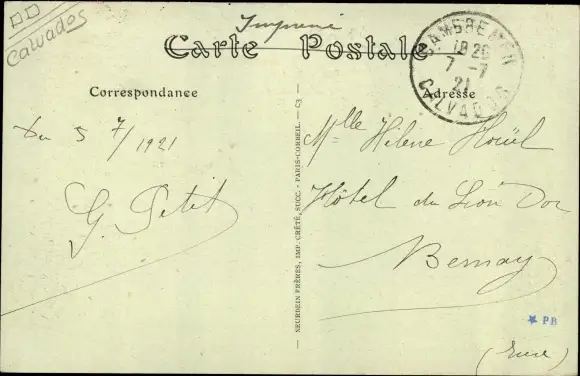 CALVADOS
Imprimé
Carte Postale
CAMBREMER
18 20
7 -7
21
CALVADOS
Correspondance
Adresse
Du 5 7/1921
G. Petit
NEURDEIN FRÈRES, IMP. CRÉTÉ, SUCC. - PARIS-CORBEIL. — C3
Mlle Hélène
Hôtel du Lion Dor
Bernay
★ PB
(Eure)